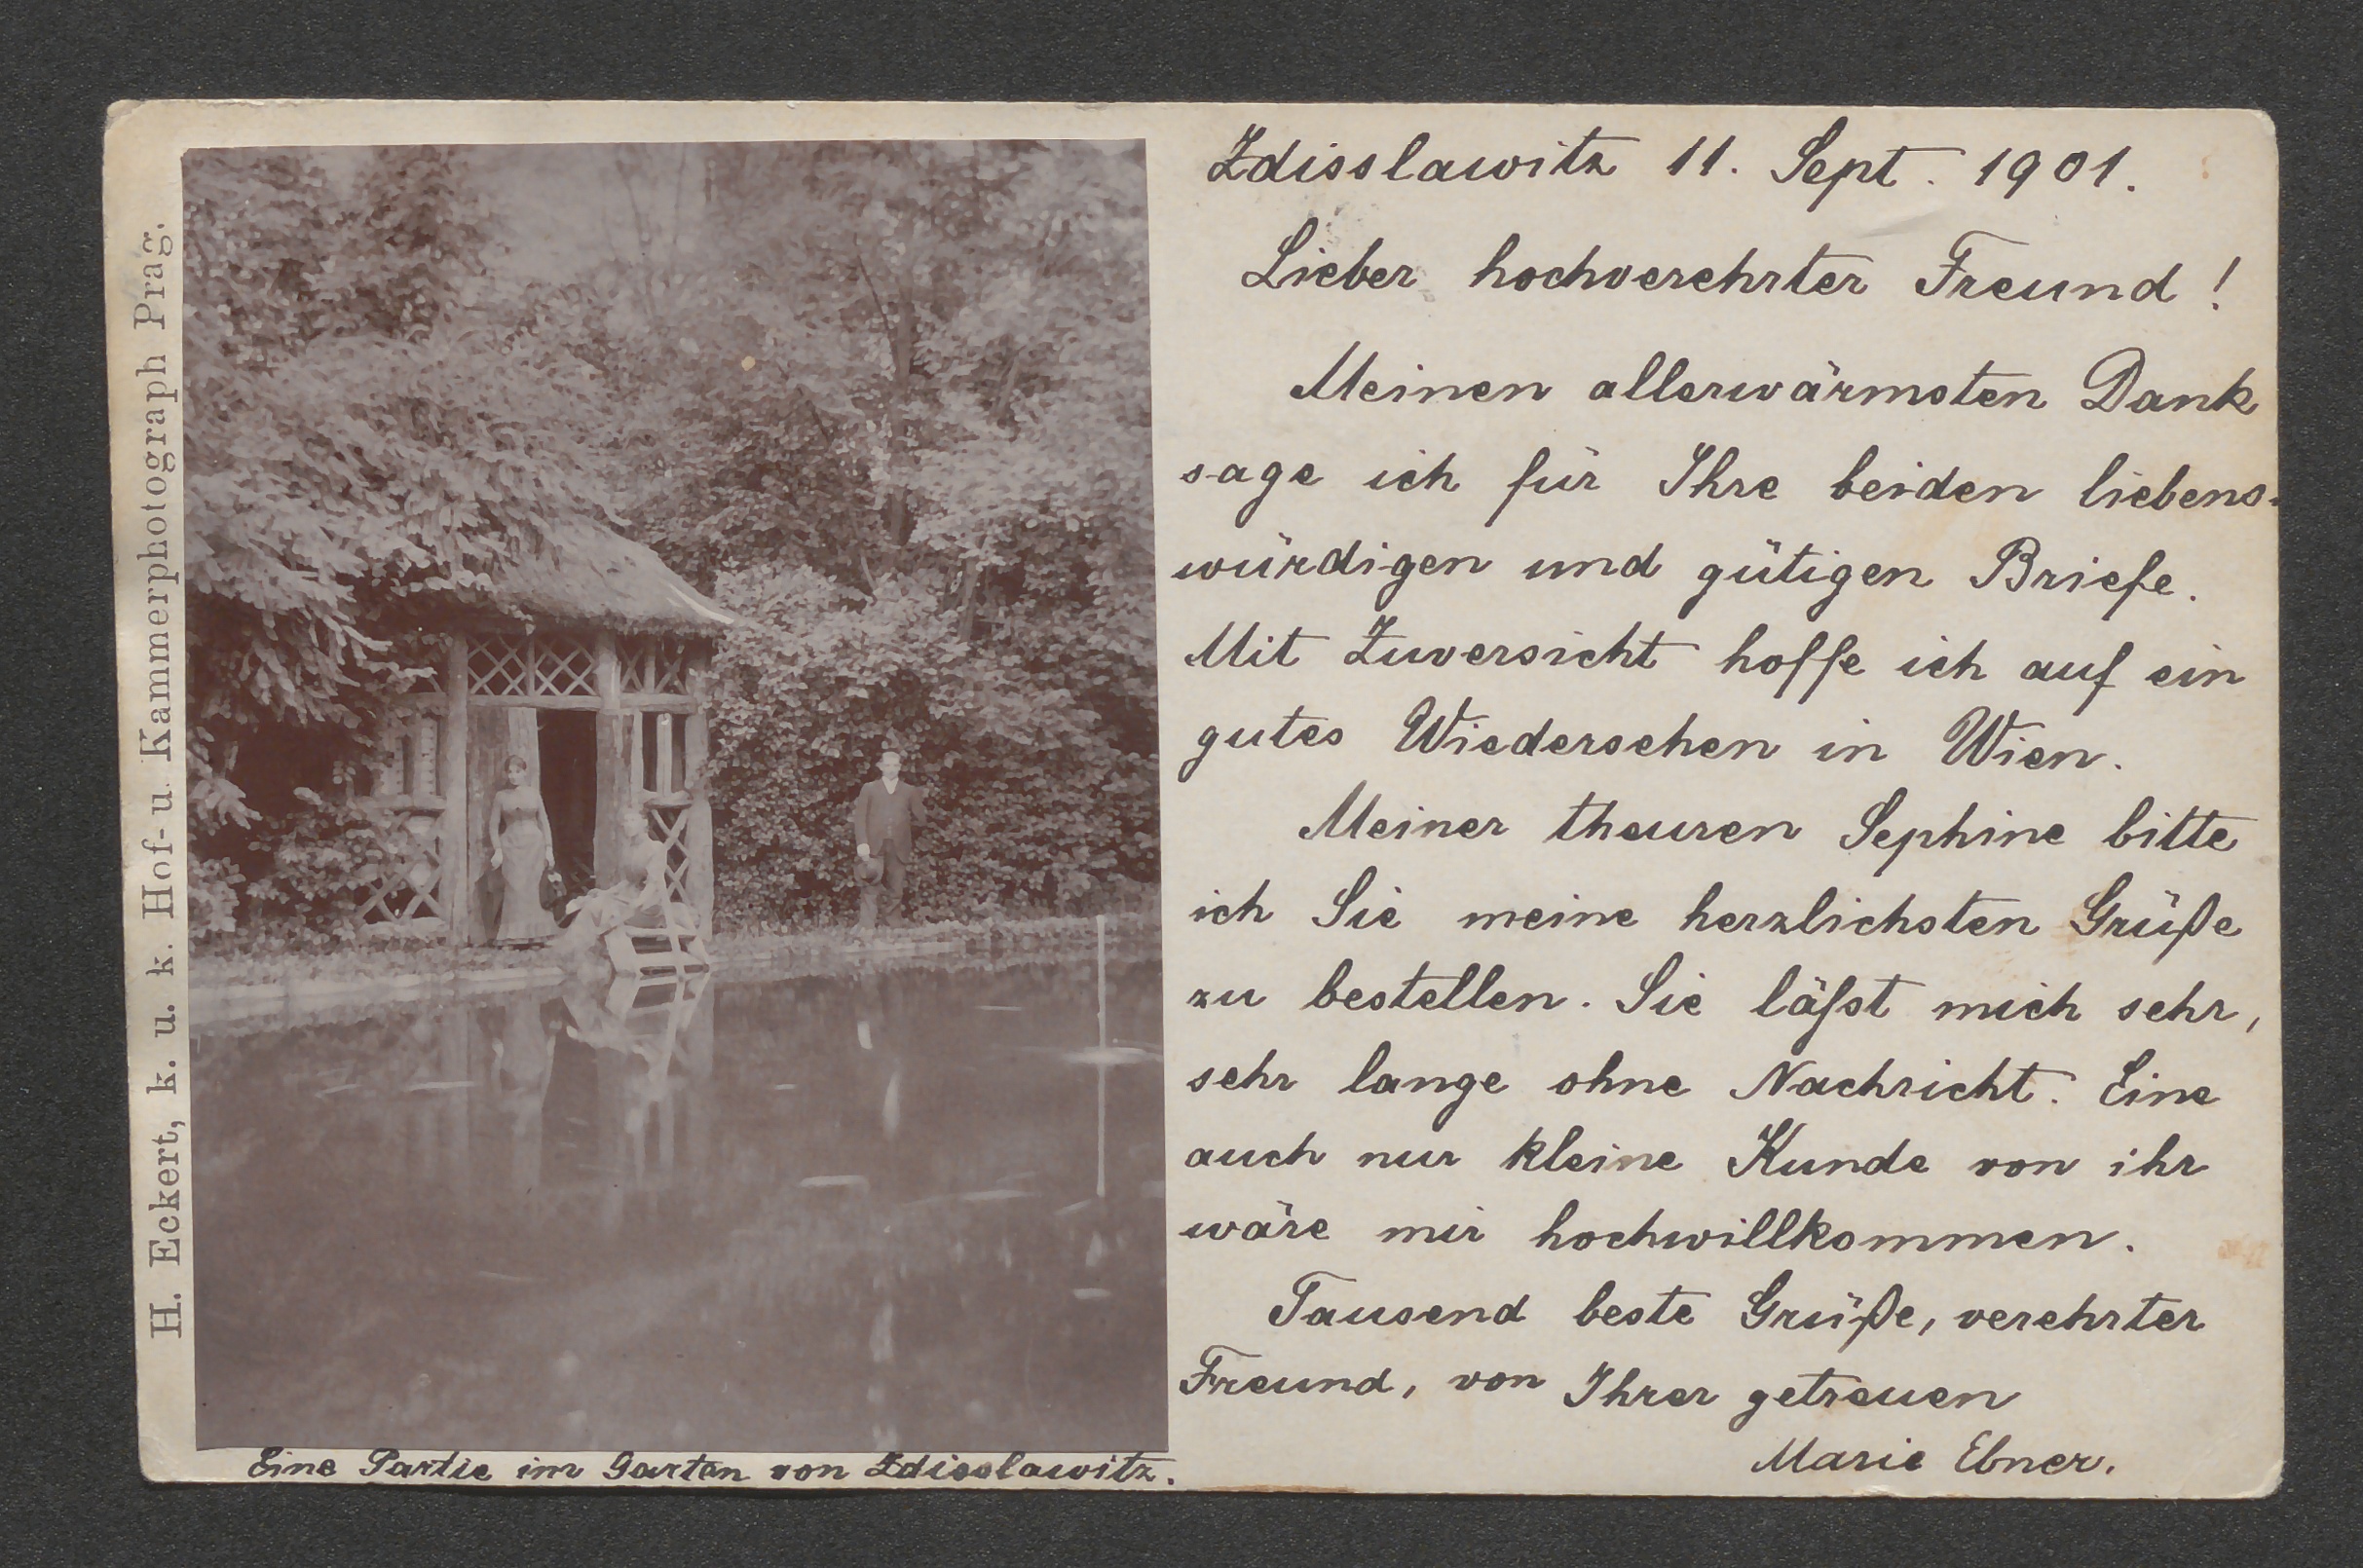 H. Eckert, k. u. k. Hof- u. Kammerphotograph Prag.
Eine Partie im Garten von Zdisslawitz.
Zdisslawitz 11. Sept. 1901.
Lieber hochverehrter Freund!
Meinen allerwärmsten Dank
sage ich für Ihre beiden liebens-
würdigen und gütigen Briefe.
Mit Zuversicht hoffe ich auf ein
gutes Wiedersehen in Wien.
Meiner theuren Sephine bitte
ich Sie meine herzlichsten Grüße
zu bestellen. Sie läſst mich sehr,
sehr lange ohne Nachricht. Eine
auch nur kleine Kunde von ihr
wäre mir hochwillkommen.
Tausend beste Grüße, verehrter
Freund, von Ihrer getreuen
Marie Ebner.